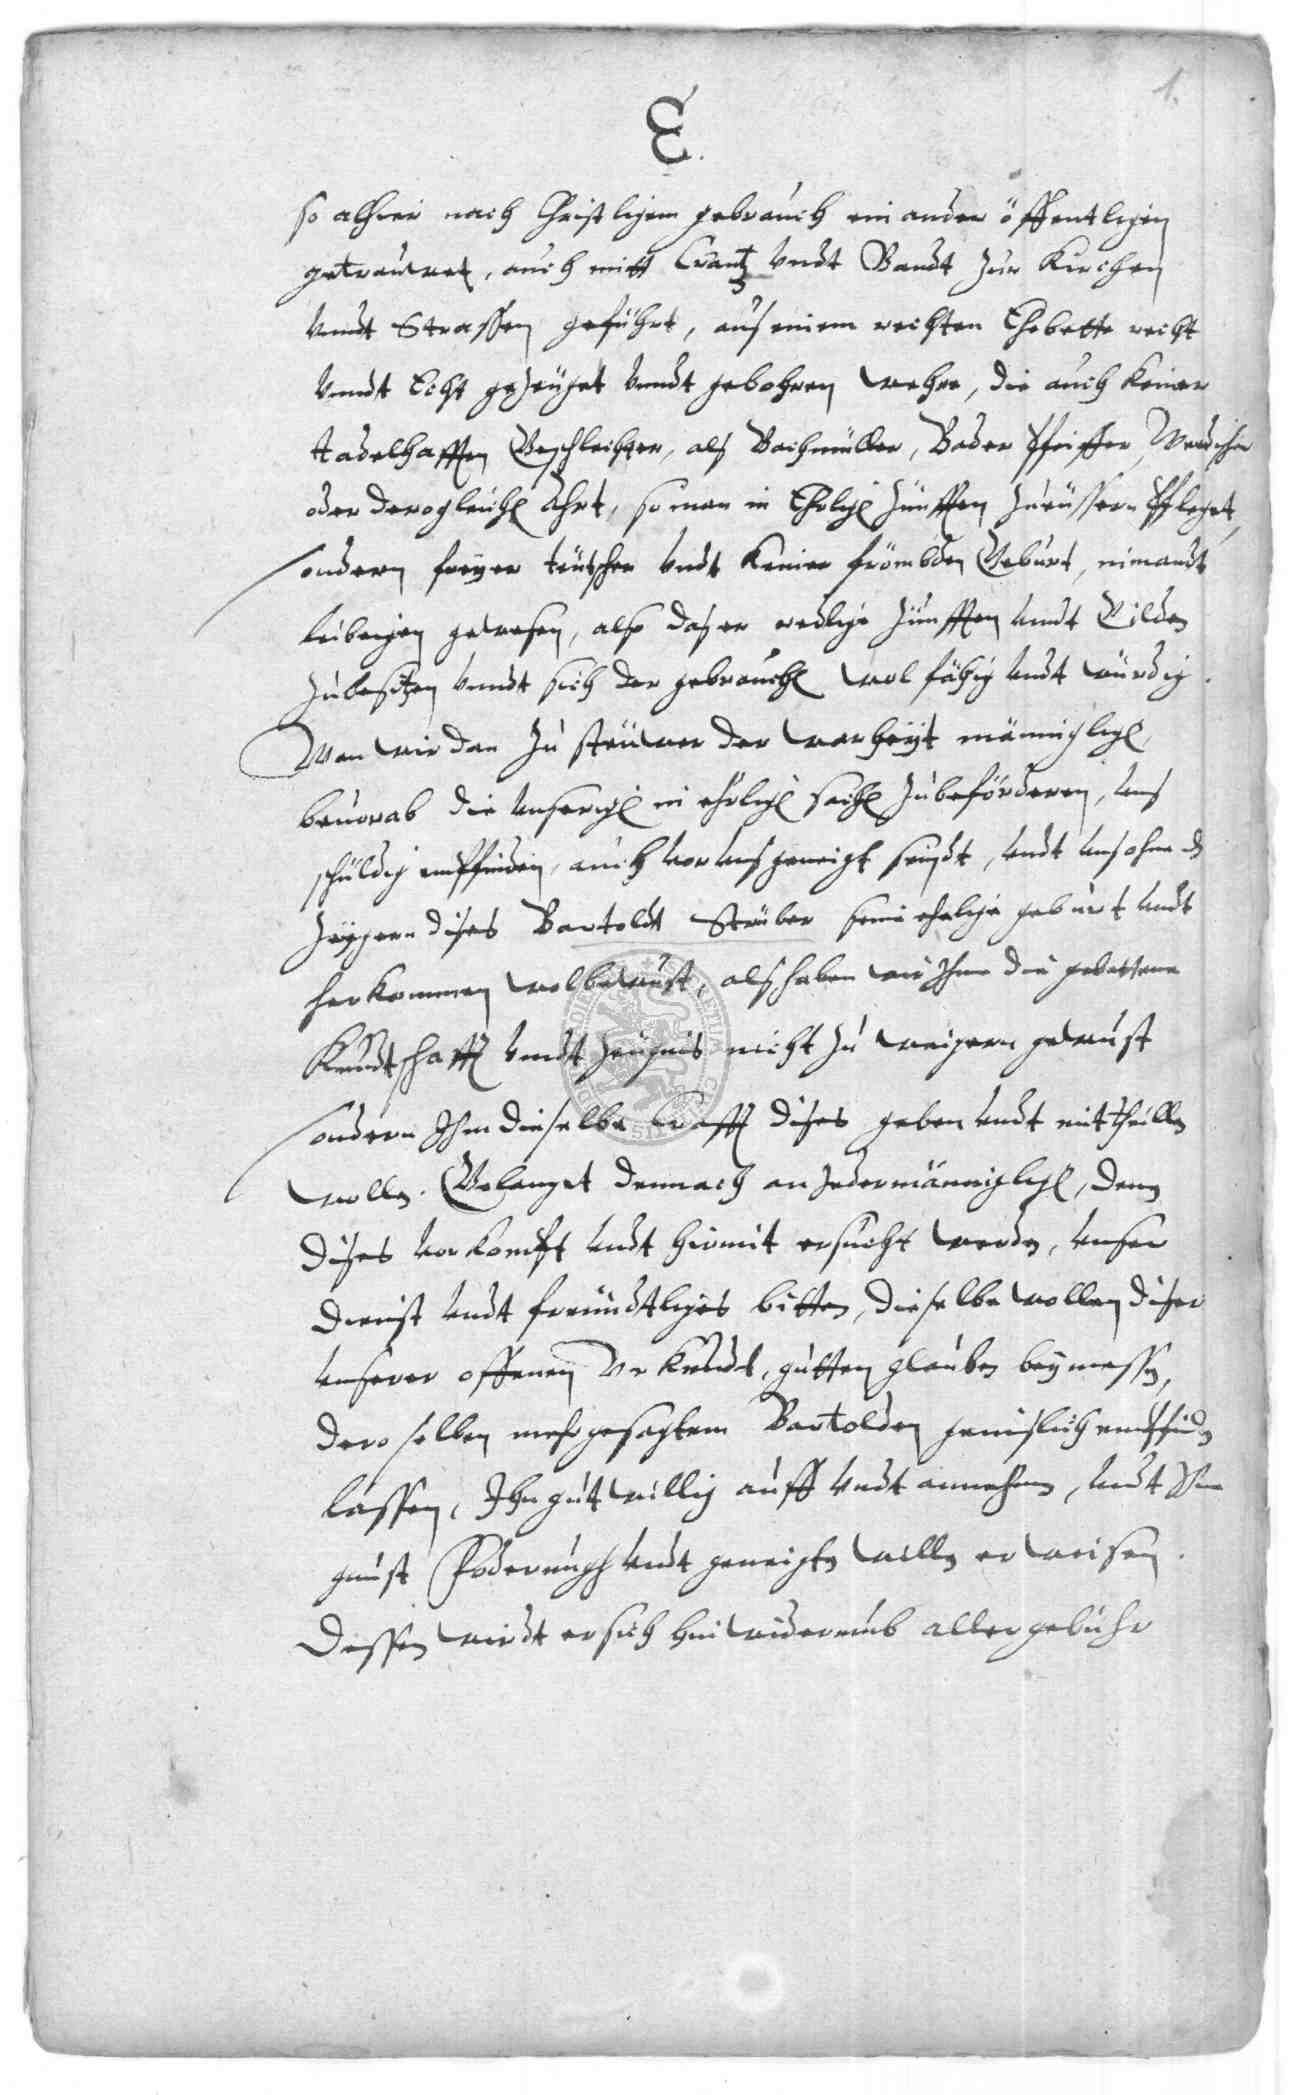 1.
E.
so alhier nach Christlichem gebrauch ein ander öffentlichen
getrauwet, auch mitt Crantz vndt Bandt zur Kirchen
vndt Strassen geführt, aus einem rechten Ehebette recht
vnndt Echt gezeuget vnndt gebohren wehre, die auch keiner
tadelhafften Geschlechter, als Bachmüller, Bader Pfeiffer,
oder dergleichen Ahrt, so man in Ehrlichen Zünfften zu eüssern pfleget,
sondern freyer teütscher vndt keiner frömbden Geburt, nimandt
leibeigen gewesen, also das er redliche Zünfften vndt Gilden
zubesitzen vnndt sich der gebrauchen wol fähig vndt würdig.
Wan wir dan zu steüwer der warheyt männiglichen,
beuorab die vnserigen in ehrlichen sachen zubeförderen, vns
schüldig empfinden, auch vor vns geneigt seindt, vndt vns ohne das
zeygern dises Bartoldt Strüber seine ehelige geburt vndt
herkommen wolbewust, als haben wir Ihme die gebettene
Kundtschafft vnndt zeugnis nicht zu weigern gewust
sondern Ihm dieselbe krafft dises geben vndt mittheillen
wollen. Gelanget demnach an Jedermänniglichen, denen
dises vorkompft vndt hiermit ersucht werden, vnser
dienst vndt freündtliches bitten, dieselbe wollen diser
vnserer offenen Vrkundt, gutten glauben beymessen,
deroselben mehrgesagtem Bartolden genislich empfinden
lassen, Ihn gutwillig auff vndt annehmen, vndt Ihme
gunst foderungh vndt geneigten willen erweisen.
Dessen wirdt er sich hinwiderumb aller gebuhr